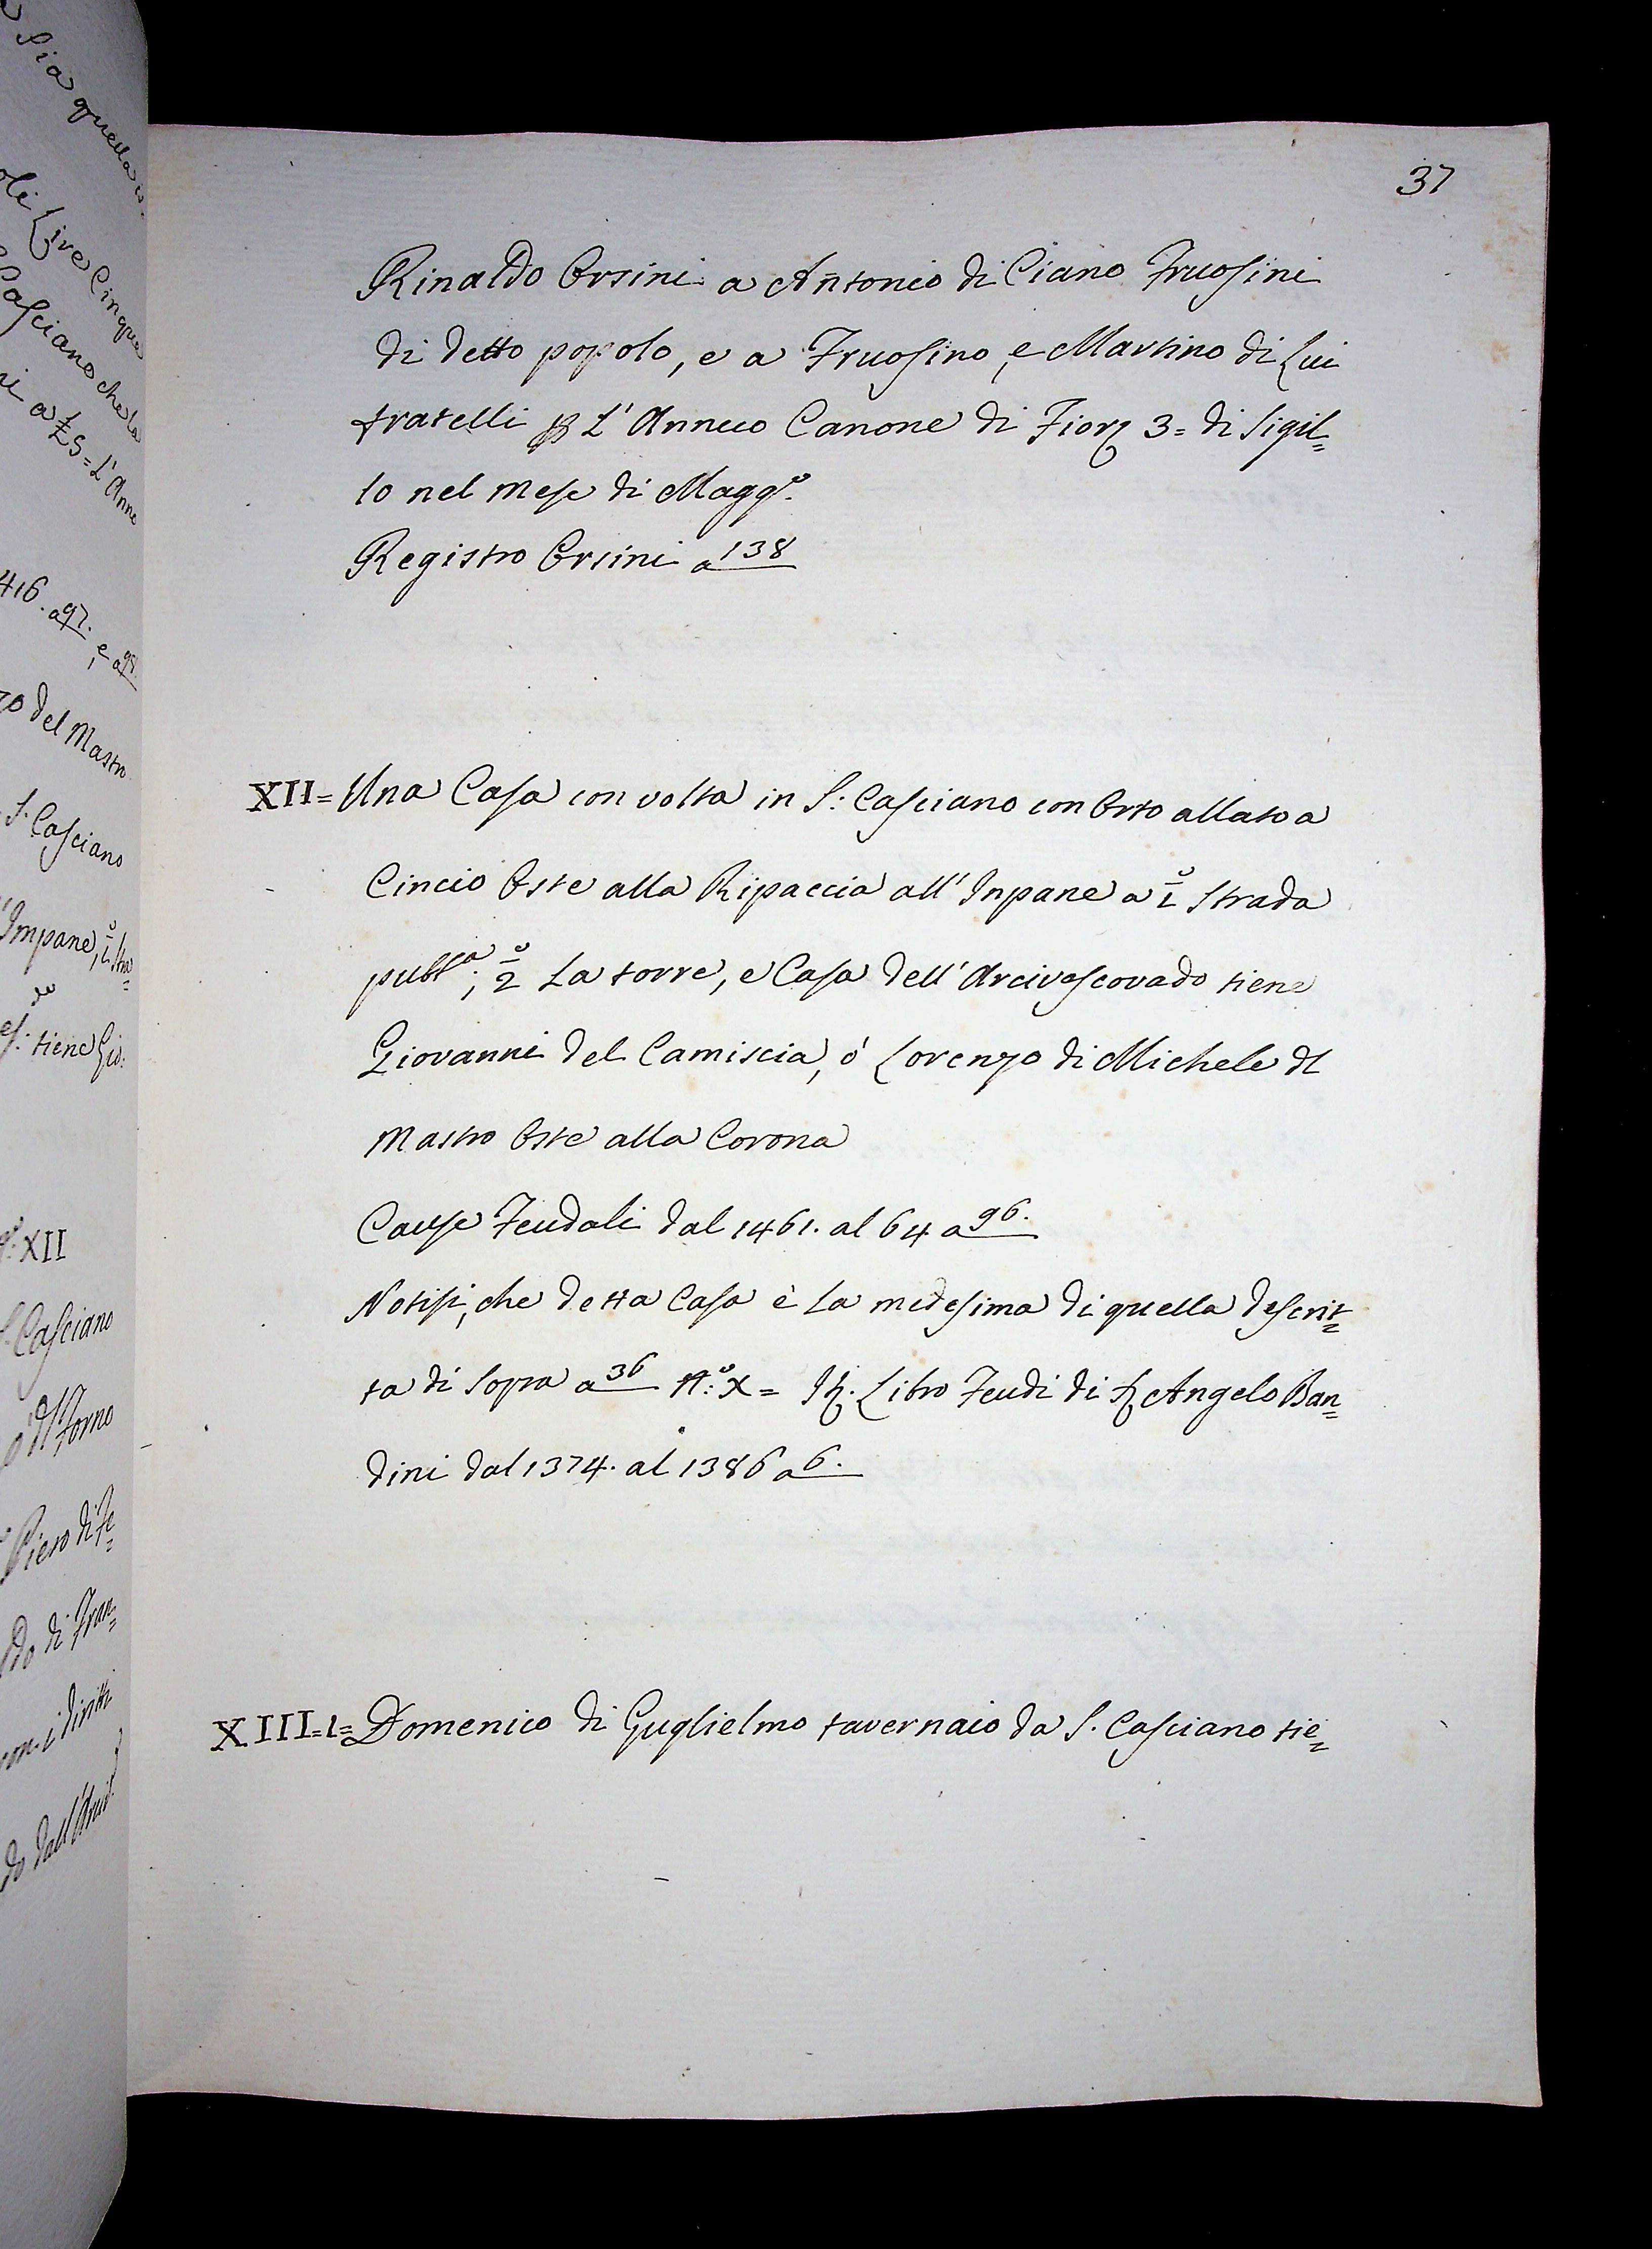 37
Rinaldo Orsini a Antonio di Ciano Fruosini
di detto popolo, e a Fruosino, e Martino di Lui
fratelli p L'Annuo Canone di Fior 3= di Sigil=
lo nel mese di Magg.º
Registro Orsini a 138
XII= Una Casa con volta in S: Casciano con Orto allato a
Cincio Oste alla Ripaccia all' Inpane a 1º Strada
pubbª; 2º La torre, e Casa dell' Arcivescovado tiene
Giovanni del Camiscia, ó Lorenzo di Michele dl
Mastro Oste alla Corona
Cause Feudali dal 1461. al 64 a 96.
Notisi, che detta Casa è La medesima di quella descrit=
ta di Sopra a 36 N:º X= Libro Feudi di Angelo Ban=
dini dal 1374. al 1386 a 6.
XIII=1= Domenico di Guglielmo tavernaio da S. Casciano tie=
Sia quella
Lire Cinque
Casciano che la
a £ 5= L'Anno
416. a 97. e a 98.
del Mastro
S. Casciano
Impane, 1º Stra=
tiene Gio:
XII
S. Casciano
dl Forno
Piero di
do di Fran=
i diritti
do dall'